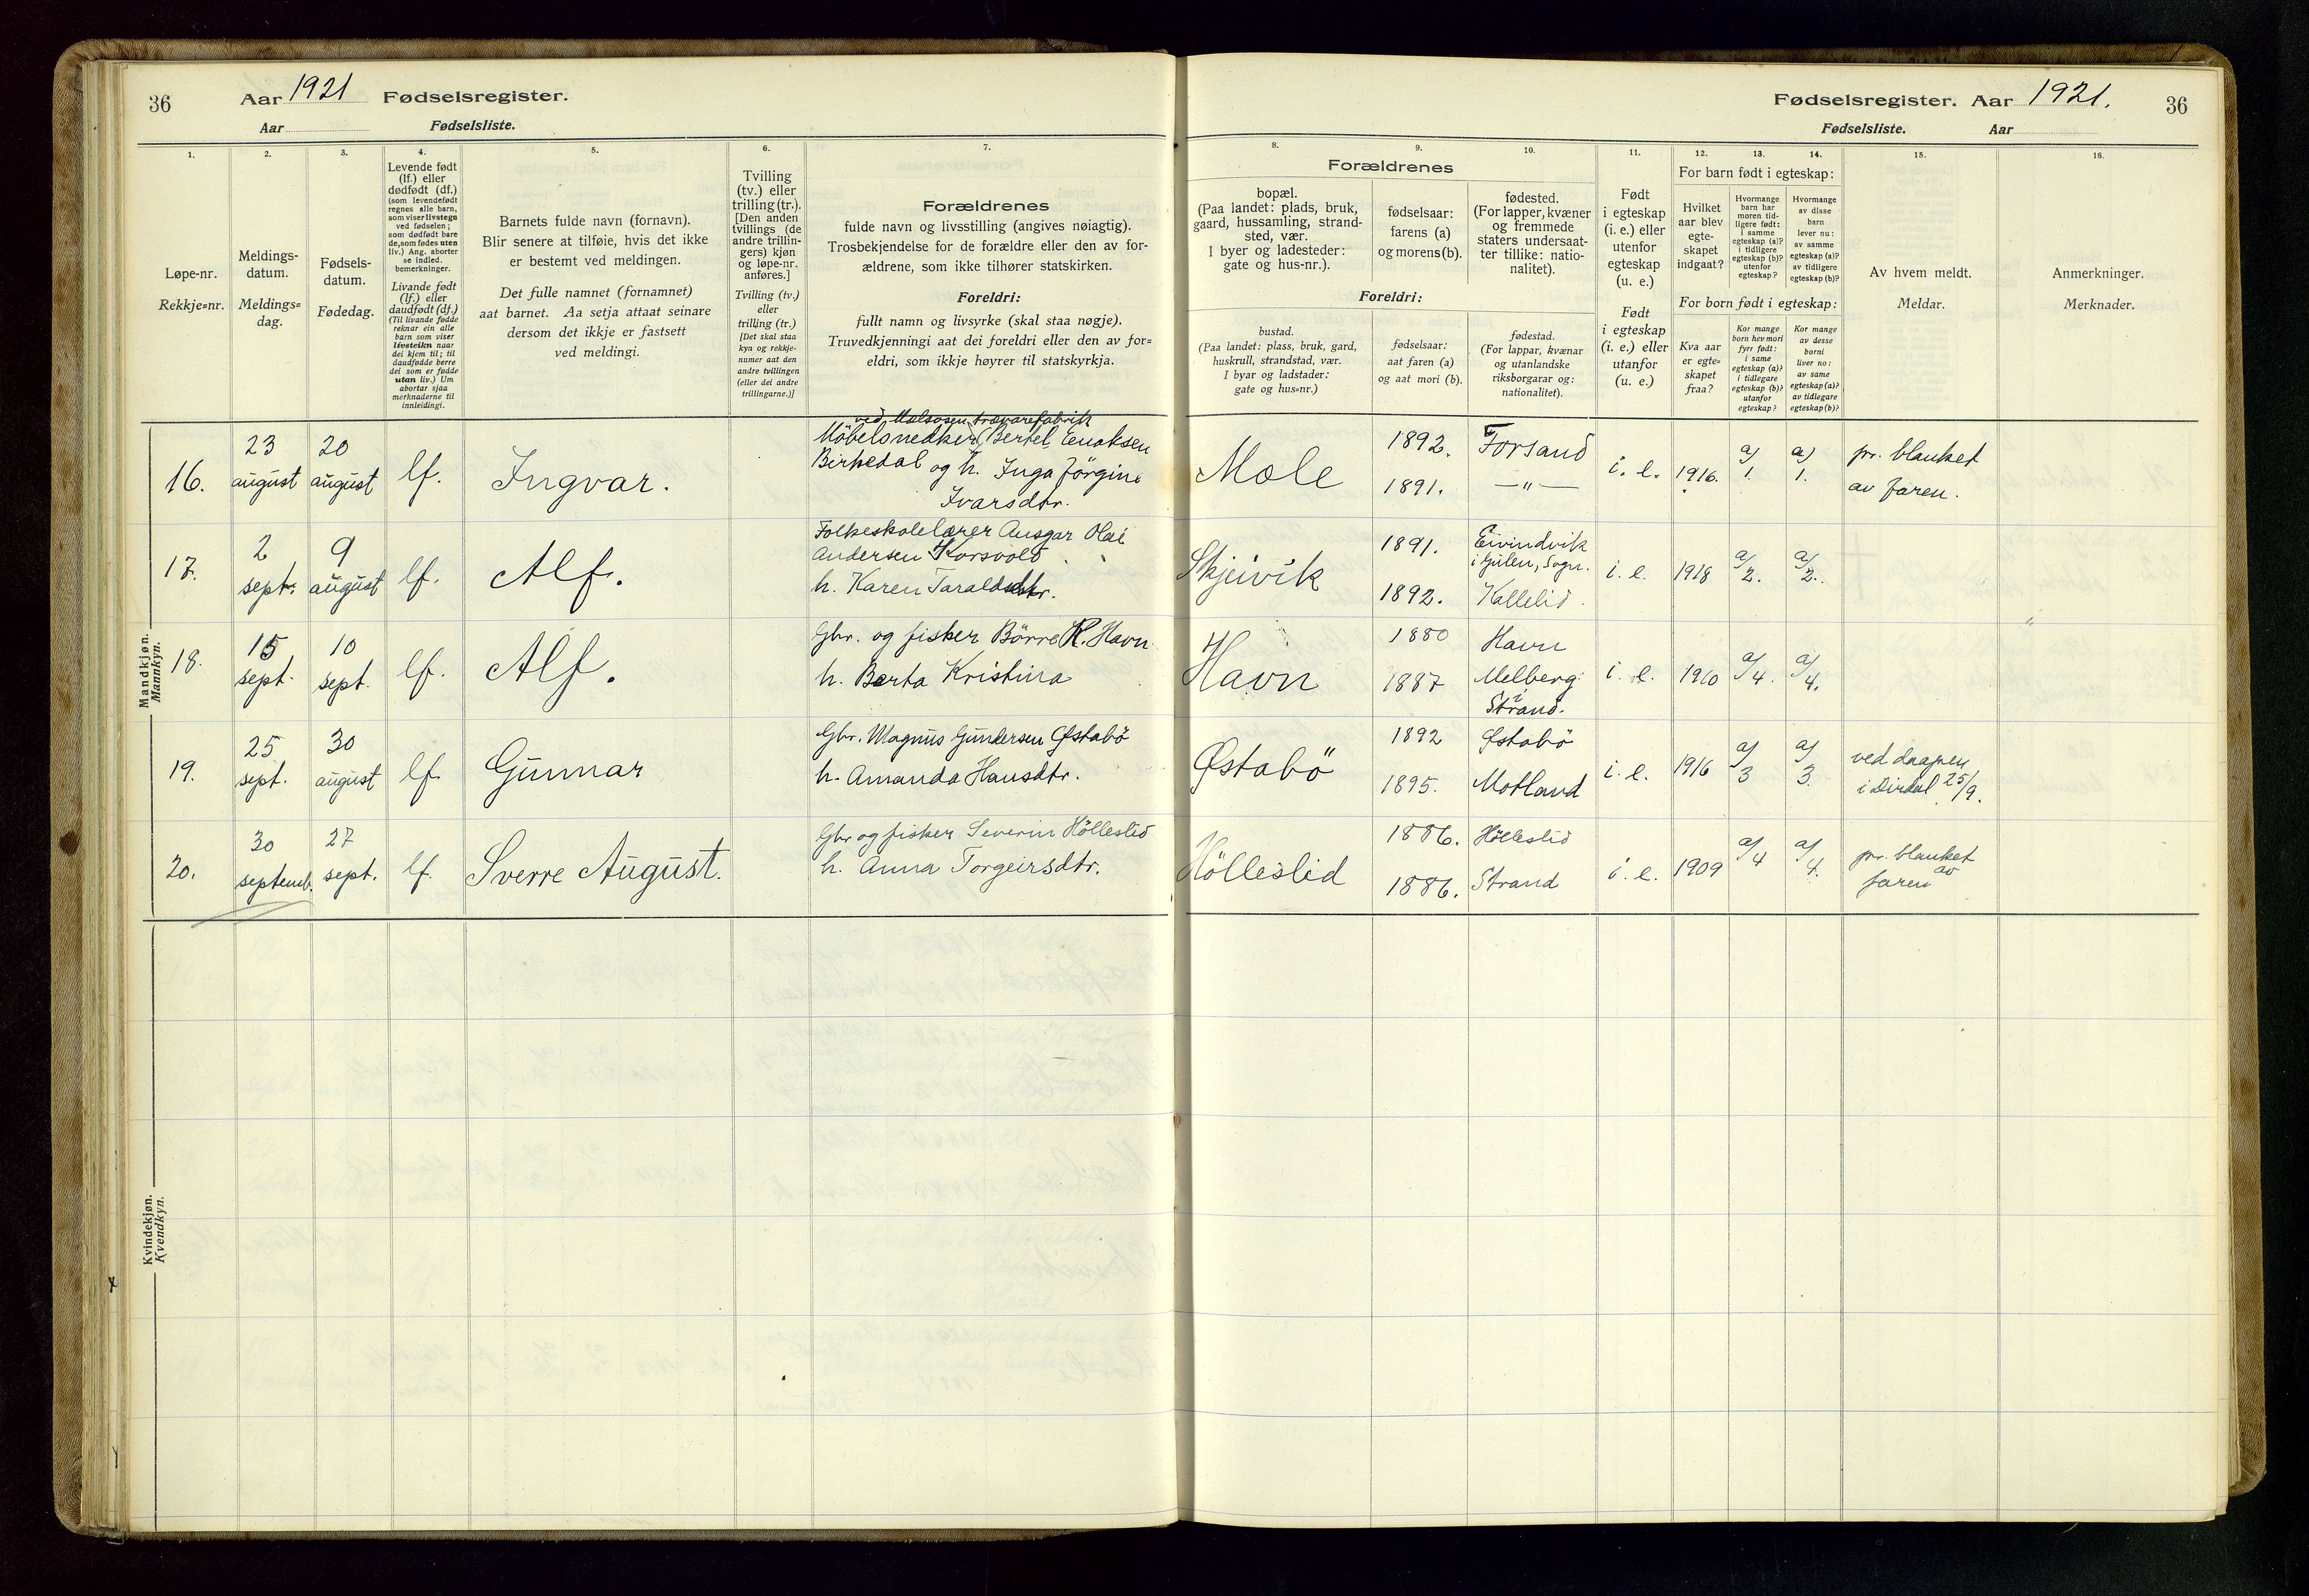 36
Aar 1921 Fødselsregister.
Aar Fødselsliste.
Fødselsregister. Aar 1921.
36
Fødselsliste. Aar
1.
2.
3.
4.
5.
6.
7.
8.
9.
10.
11.
12.
13.
14.
15.
16.
Løpe-nr.
Rekkje=nr.
Meldings-
datum.
Meldings=
dag.
Fødsels-
datum.
Fødedag.
Levende født
(lf.) eller
dødfødt (df.)
(som levendefødt
regnes alle barn,
som viser livstegn
ved fødselen;
som dødfødt bare
de, som fødes uten
liv.) Ang. aborter
se indled.
bemerkninger.
Livande født
(lf.) eller
daudfødt (df.)
(Til livande fødde
reknar ein alle
barn som viser
livsteikn naar
dei kjem til; til
daudfødde berre
dei som er fødde
utan liv.) Um
abortar sjaa
merknaderne til
innleidingi.
Barnets fulde navn (fornavn).
Blir senere at tilføie, hvis det ikke
er bestemt ved meldingen.
Det fulle namnet (fornamnet)
aat barnet. Aa setja attaat seinare
dersom det ikkje er fastsett
ved meldingi.
Tvilling
(tv.) eller
trilling (tr.).
[Den anden
tvillings (de
andre trillin-
gers) kjøn
og løpe-nr.
anføres.]
Tvilling (tv.)
eller
trilling (tr.)
[Det skal staa
kyn og rekkje-
numer aat den
andre tvillingen
(eller dei andre
trillingarne.)]
Forældrenes
fulde navn og livsstilling (angives nøiagtig).
Trosbekjendelse for de forældre eller den av for-
ældrene, som ikke tilhører statskirken.
Foreldri:
fullt namn og livsyrke (skal staa nøgje).
Truvedkjenningi aat dei foreldri eller den av for=
eldri, som ikkje høyrer til statskyrkja.
Forældrenes
bopæl.
(Paa landet: plads, bruk,
gaard, hussamling, strand-
sted, vær.
I byer og ladesteder:
gate og hus-nr.).
fødselsaar:
farens (a)
og morens (b).
fødested.
(For lapper, kvæner
og fremmede
staters undersaat-
ter tillike: natio-
nalitet).
Foreldri:
bustad.
(Paa landet: plass, bruk, gard,
huskrull, strandstad, vær.
I byar og ladstader:
gate og hus=nr.)
fødselsaar:
aat faren (a)
og aat mori (b).
fødestad.
(For lappar, kvænar
og utanlandske
riksborgarar og:
nationalitet).
Født
i egteskap
(i. e.) eller
utenfor
egteskap
(u. e.)
Født
i egteskap
(i. e.) eller
utanfor
(u. e.)
For barn født i egteskap:
Hvilket
aar blev
egte-
skapet
indgaat?
Hvormange
barn har
moren tid-
ligere født:
i samme
egteskap (a)?
i tidligere
egteskap (b)?
utenfor
egteskap?
Hvormange
av disse
barn
lever nu:
av samme
egteskap (a)?
av tidligere
egteskap (b)?
For born født i egteskap:
Kva aar
er egte=
skapet
fraa?
Kor mange
born hev mori
fyrr født:
i same
egteskap (a)?
i tidlegare
egteskap (b)?
utanfor
egteskap?
Kor mange
av desse
borni
liver no:
av same
egteskap (a)?
av tidlegare
egteskap (b)?
Av hvem meldt.
Meldar.
Anmerkninger.
Merknader.
Mandkjøn.
Mannkyn.
16.
23
august
20
august
lf.
Ingvar.
ved trævarefabrik
Möbelsnedker Bertel Enoksen
Birkedal og h. Inga Jörgine
Ivarsdtr.
Mæle
1892.
1891.
Forsand
—"—
i. e.
1916.
a/
1.
a/
1.
pr. blanket
av faren.
17.
2
sept.
9
august
lf.
Alf.
Folkeskolelærer Ansgar Olai
Andersen Korsvold
h. Karen Taraldsdtr.
Skjeivik
1891.
1892.
Eivindvik
i Gulen, Sogn.
Kallelid.
i. e.
1918
a/
2.
a/
2.
18.
15
sept.
10
sept.
lf.
Alf.
Gbr. og fisker Börre K. Havn
h. Berta Kristina
Havn
1880
1887
Havn
Melberg
i
Strand.
i. e.
1910
a/4.
a/4.
19.
25
sept.
30
august
lf.
Gunnar
Gbr. Magnus Gundersen Østabö
h. Amanda Hansdtr.
Østabö
1892
1895.
Østabö
Motland
i. e.
1916
a/
3
a/
3.
ved daapen
i Dirdal 25/9.
20.
30
septemb.
27
sept.
lf.
Sverre August.
Gbr og fisker Severin Hölleslid
h. Anna Torgeirsdtr.
Hölleslid
1886.
1886.
Hölleslid
Strand
i. e.
1909
a/4
a/4.
pr. blanket
av
faren
Kvindekjøn.
Kvendkyn.